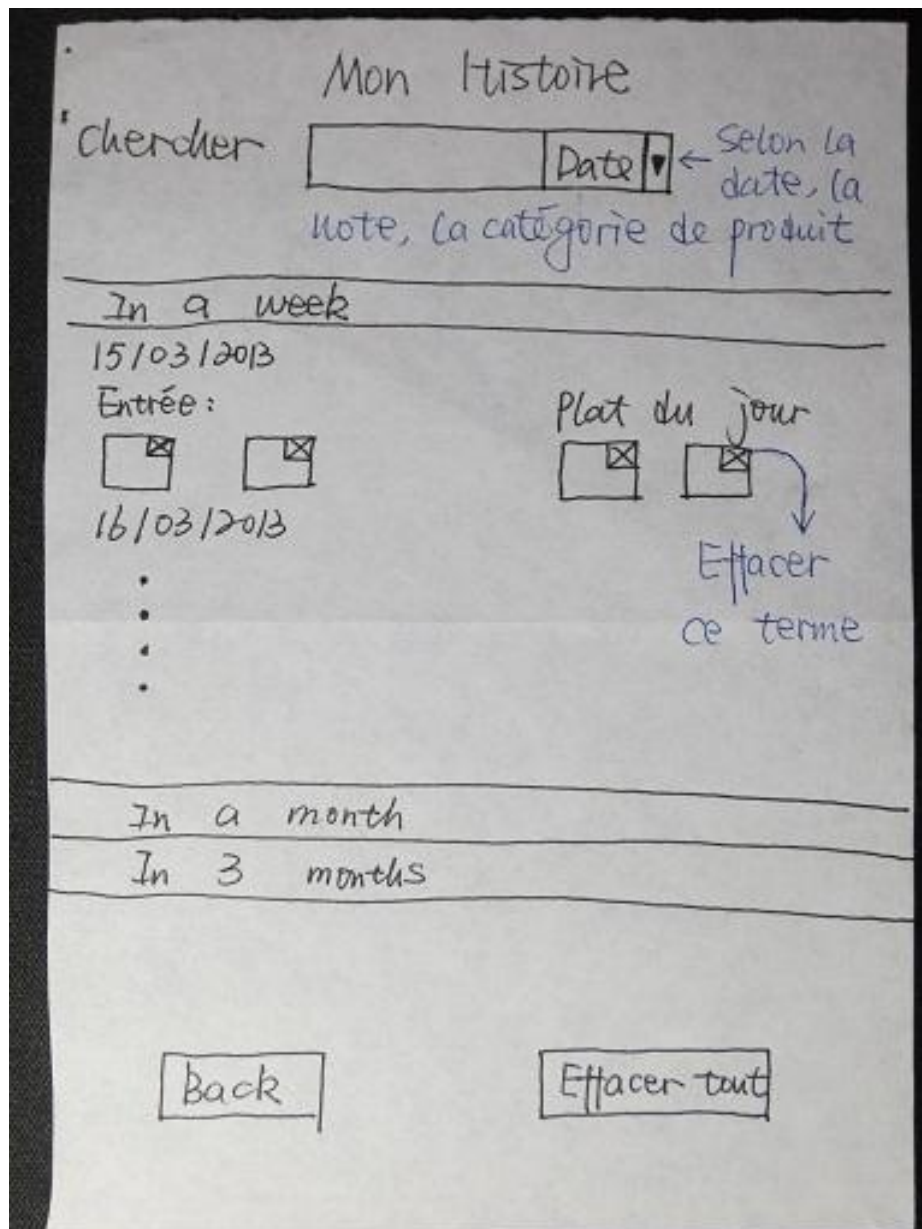 Mon Histoire
Chercher
Date ▼
← Selon la
date, la
note, la catégorie de produit
In a week
15/03/2013
Entrée :
Plat du jour
16/03/2013
Effacer
ce terme
In a month
In 3 months
Back
Effacer tout